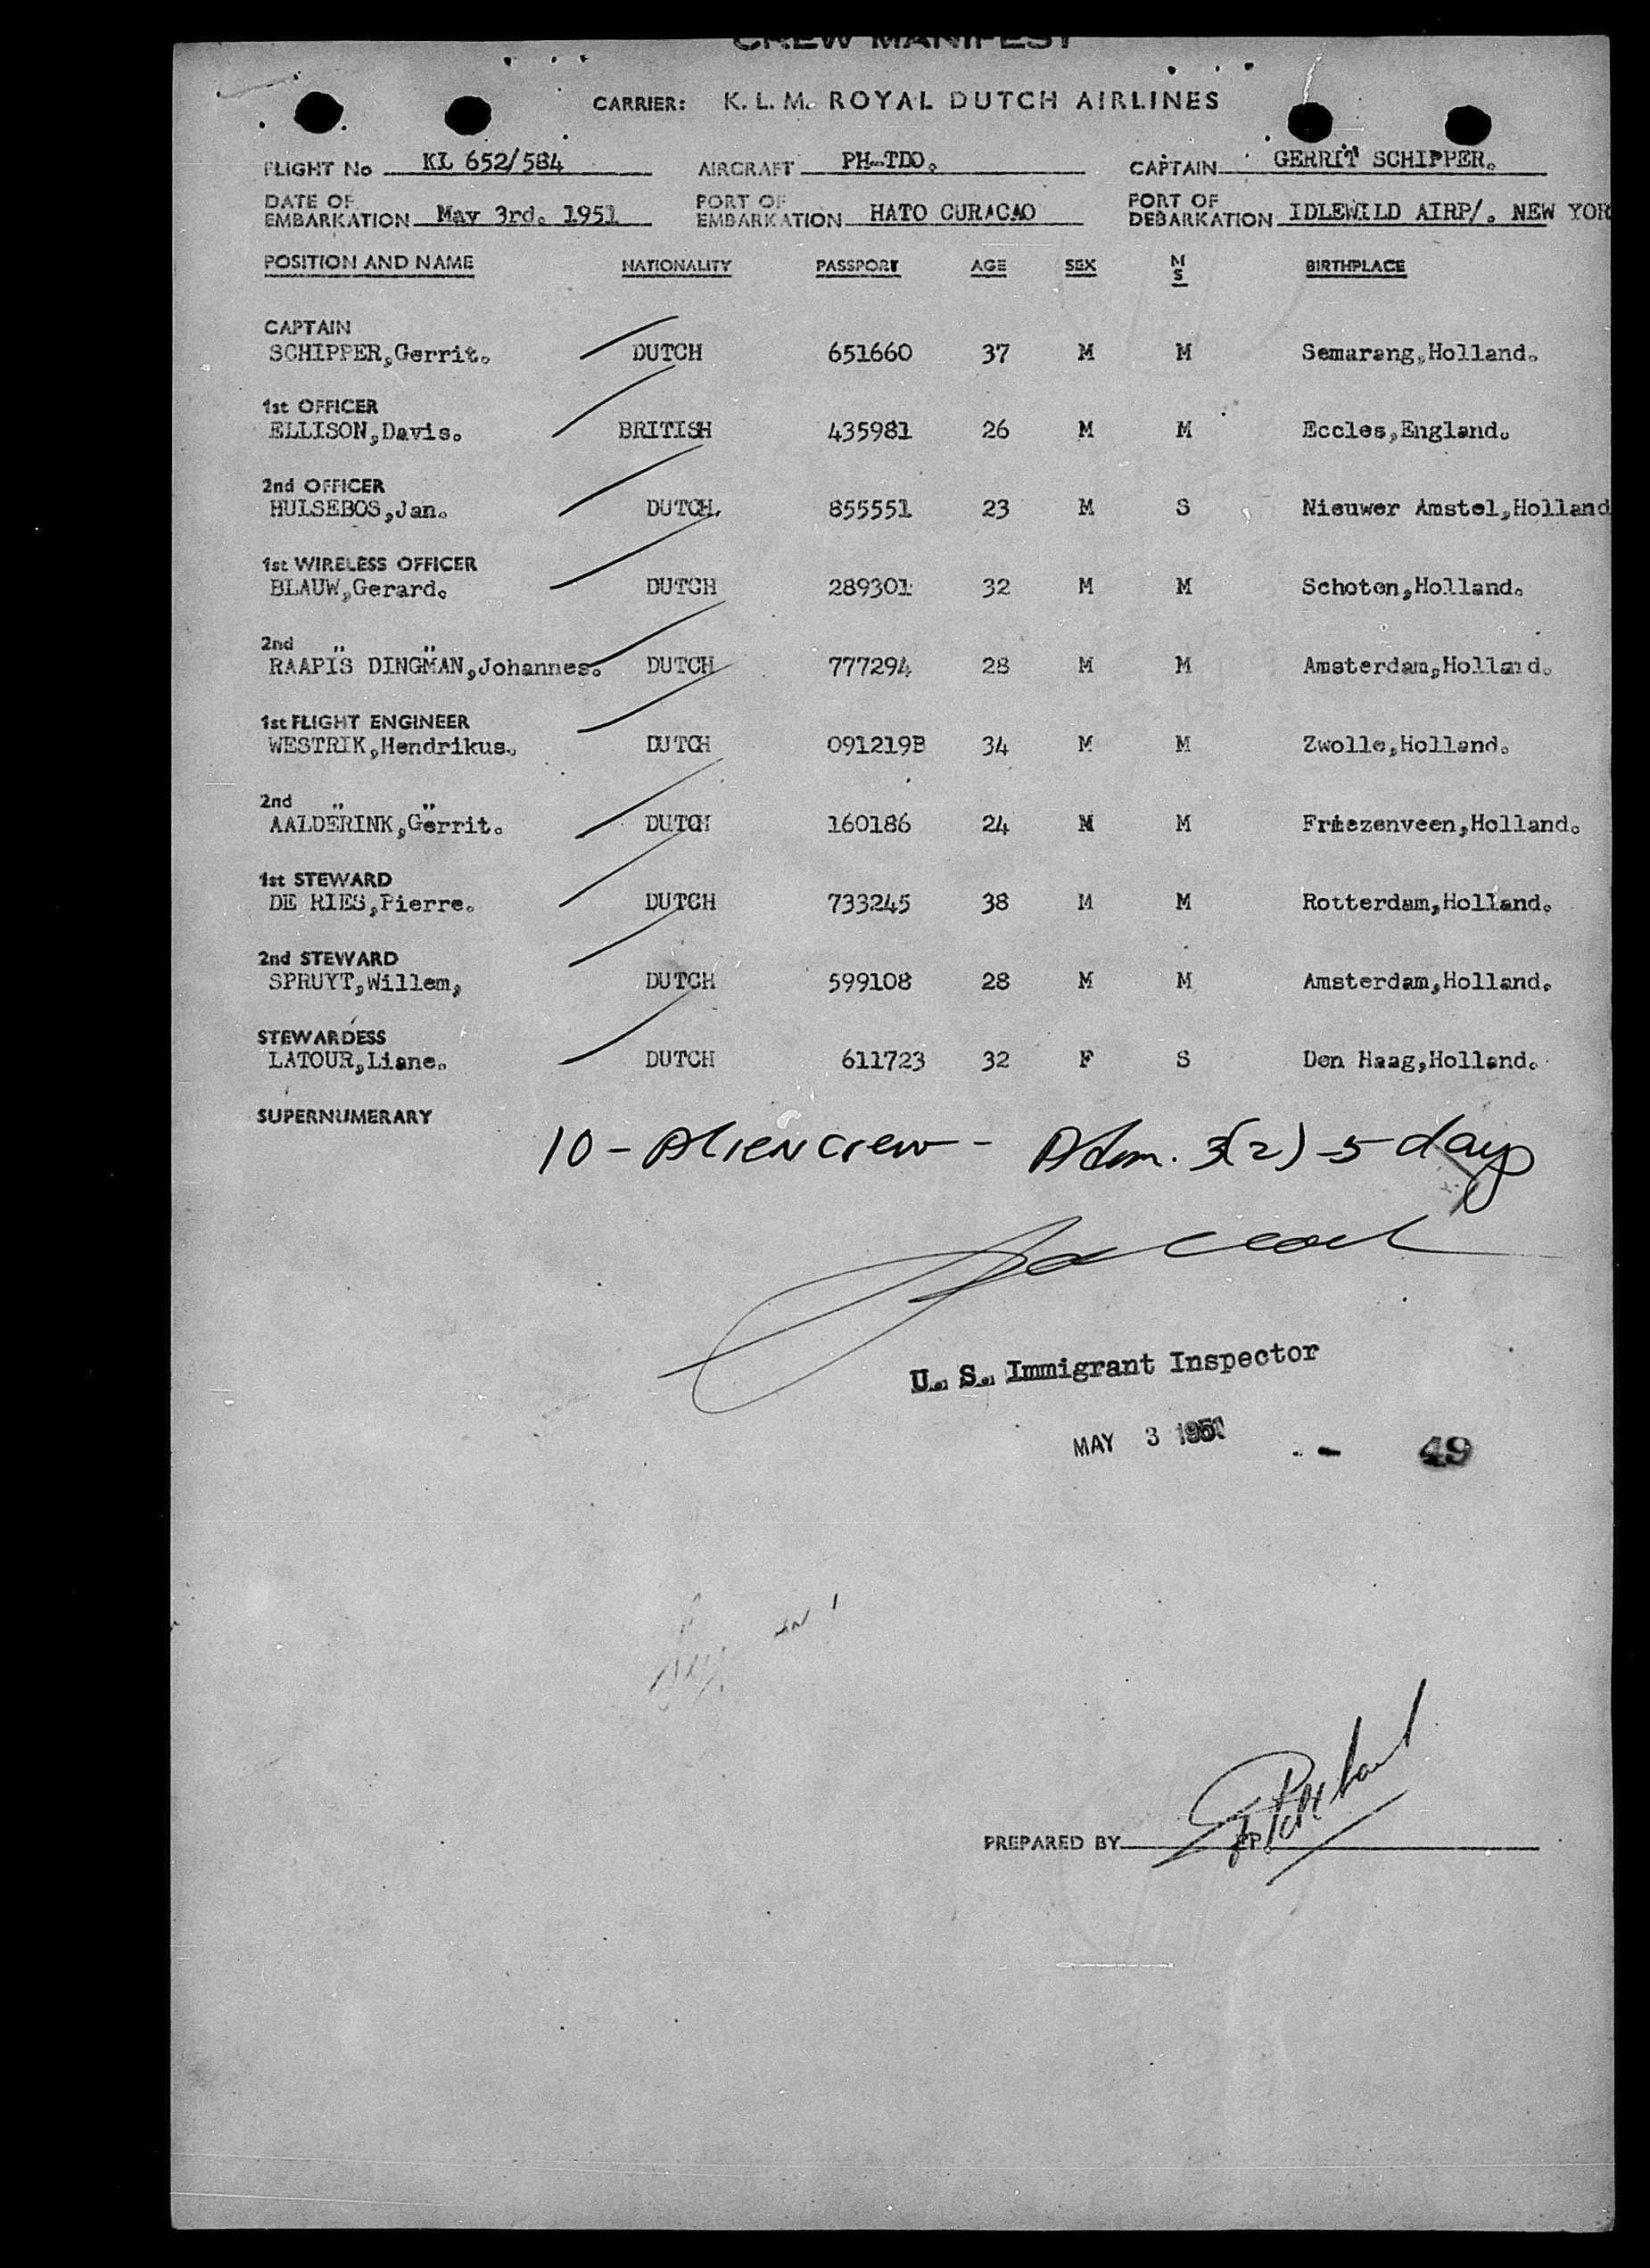 CREW MANIFEST
CARRIER: K. L. M. ROYAL DUTCH AIRLINES
FLIGHT No KL 652/584 AIRCRAFT PH-TDO. CAPTAIN GERRIT SCHIPPER.
DATE OF EMBARKATION May 3rd. 1951 PORT OF EMBARKATION HATO CURACAO PORT OF DEBARKATION IDLEWILD AIRP/. NEW YOR
POSITION AND NAME NATIONALITY PASSPORT AGE SEX M S BIRTHPLACE
CAPTAIN
SCHIPPER,Gerrit. DUTCH 651660 37 M M Semarang,Holland.
1st OFFICER
ELLISON,Davis. BRITISH 435981 26 M M Eccles,England.
2nd OFFICER
HULSEBOS,Jan. DUTCH. 855551 23 M S Nieuwer Amstel,Holland
1st WIRELESS OFFICER
BLAUW,Gerard. DUTCH 289301 32 M M Schoten,Holland.
2nd " "
RAAPIS DINGMAN,Johannes. DUTCH 777294 28 M M Amsterdam,Holland.
1st FLIGHT ENGINEER
WESTRIK,Hendrikus. DUTCH 091219B 34 M M Zwolle,Holland.
2nd " "
AALDERINK,Gerrit. DUTCH 160186 24 M M Friezenveen,Holland.
1st STEWARD
DE RIES,Pierre. DUTCH 733245 38 M M Rotterdam,Holland.
2nd STEWARD
SPRUYT,Willem, DUTCH 599108 28 M M Amsterdam,Holland.
STEWARDESS
LATOUR,Liane. DUTCH 611723 32 F S Den Haag,Holland.
SUPERNUMERARY
10 - Alien crew - Adm. 3(2) - 5 days
U. S. Immigrant Inspector
MAY 3 1951 - 49
PREPARED BY